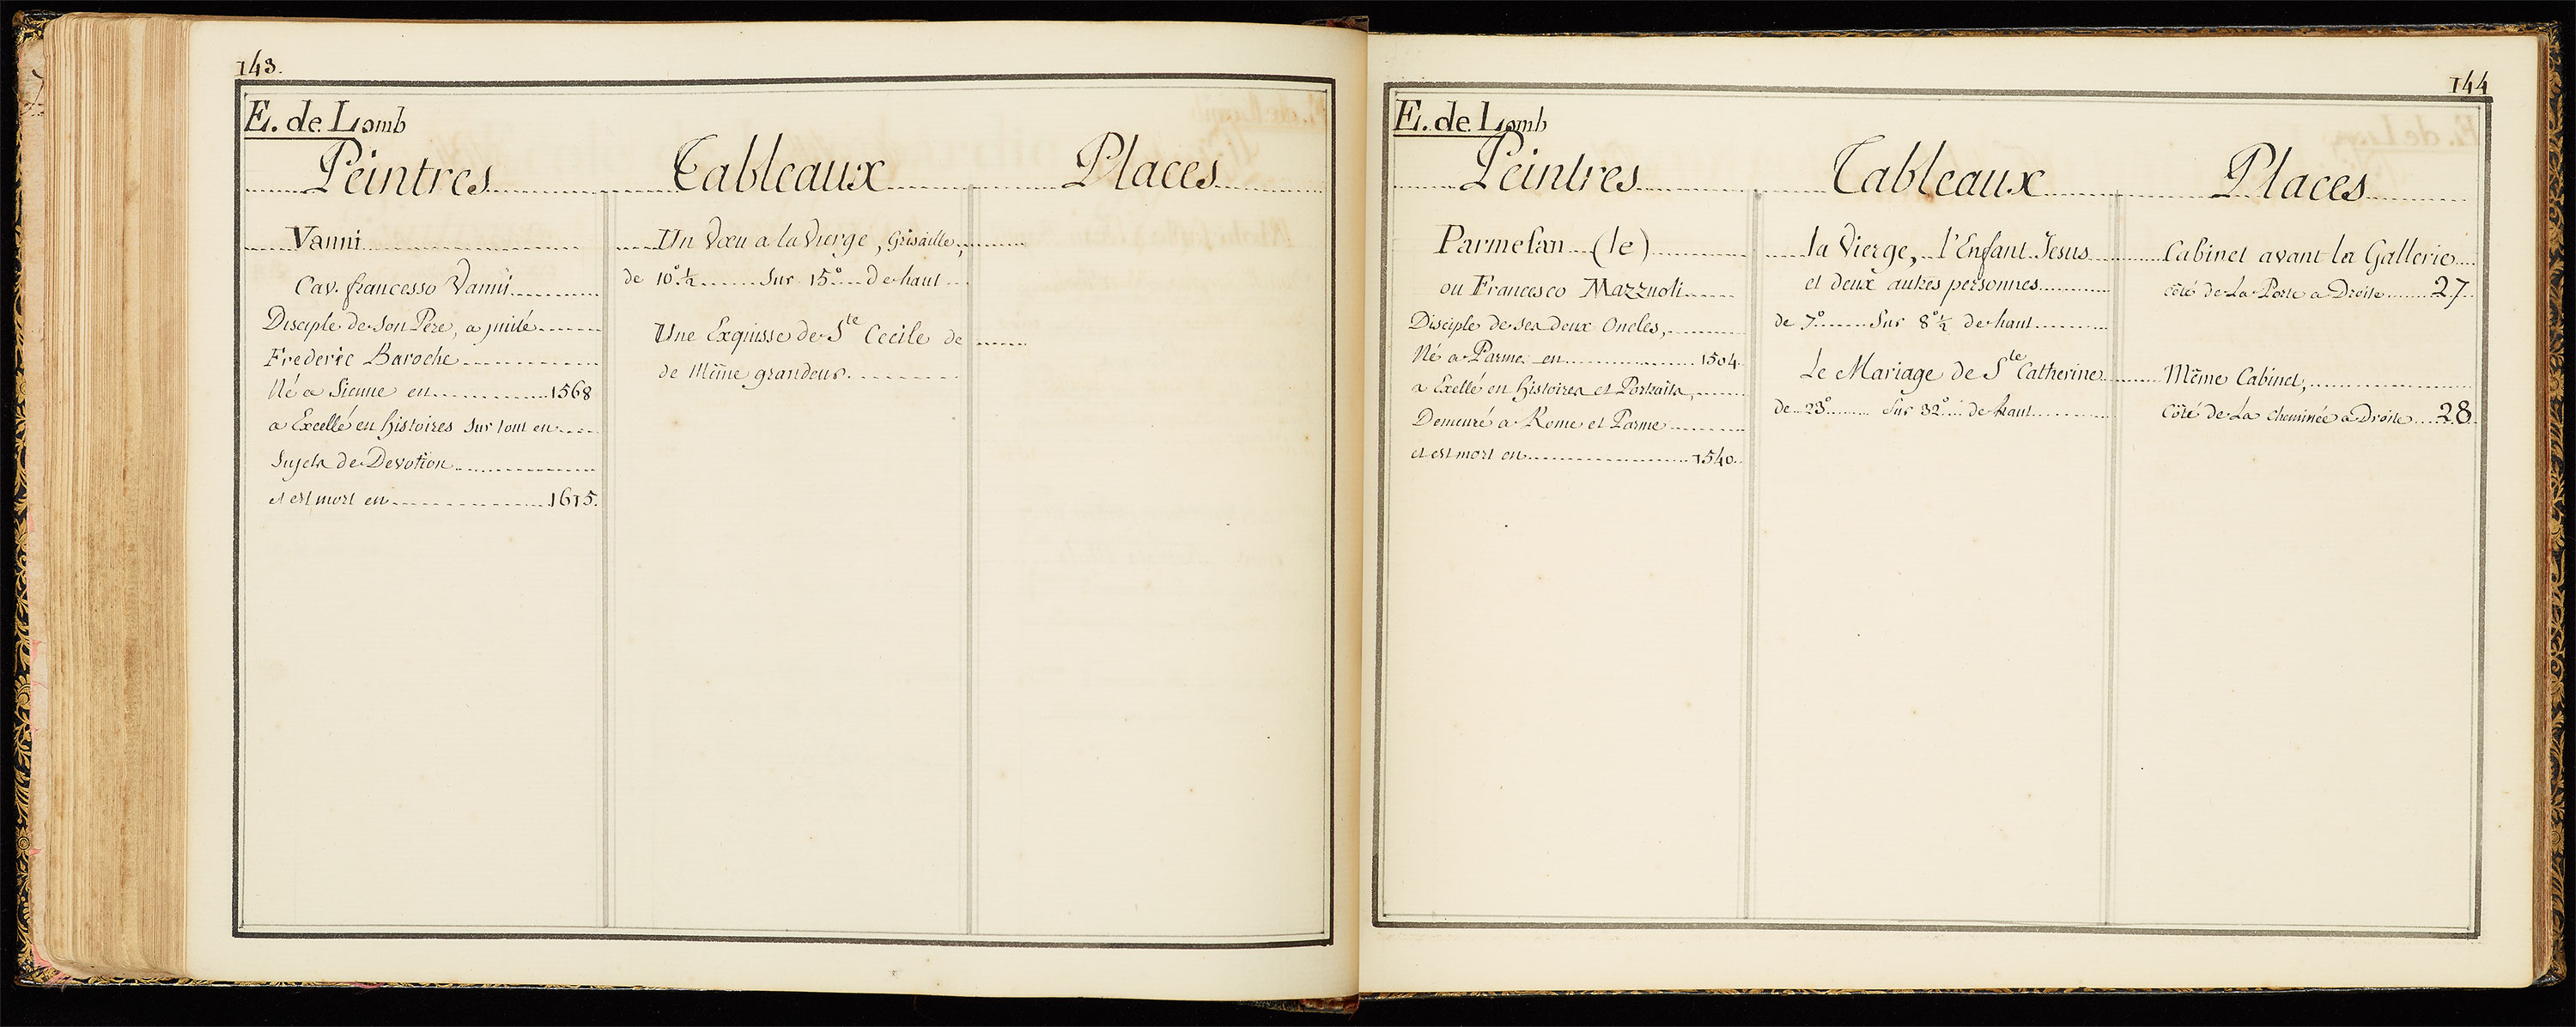 143.
E. de Lomb
Peintres Tableaux Places
Vanni Un Vœu a la Vierge, Grisaille,
Cav. francesso Vanni de 10° ½ Sur 15° De haut
Disciple de Son Pere, a imité Une Exquisse de Ste Cecile de
Frederic Baroche de Même grandeur.
Né a Sienne en 1568
a Excellé en histoires Sur tout en
Sujets de Devotion
et est mort en 1615.
144
E. de Lomb
Peintres Tableaux Places
Parmesan (le) la Vierge, l'Enfant Jesus Cabinet avant la Gallerie
ou Francesco Mazzuoli et deux autres personnes côté de La Porte a Droite 27
Disciple de ses deux Oncles, de 7° Sur 8° ½ de haut
Né a Parme en 1504
a Exellé en histoires et Portraits, Le Mariage de Ste Catherine Même Cabinet,
Demeuré a Rome et Parme de 23° Sur 32° de haut Côté de La Cheminée a Droite 28
et est mort en 1540